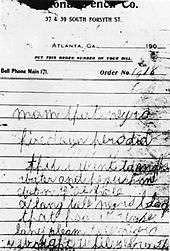 37 & 39 SOUTH FORSYTH ST.
ATLANTA, GA. 190
PUT THIS ORDER NUMBER ON YOUR BILL.
Bell Phone Main 171. Order No.
mam that negro
hire down here did
this i went to make
water and he push me
down that hole
a long tall negro black
that hoo it wase
long sleam tall negro
i wright while